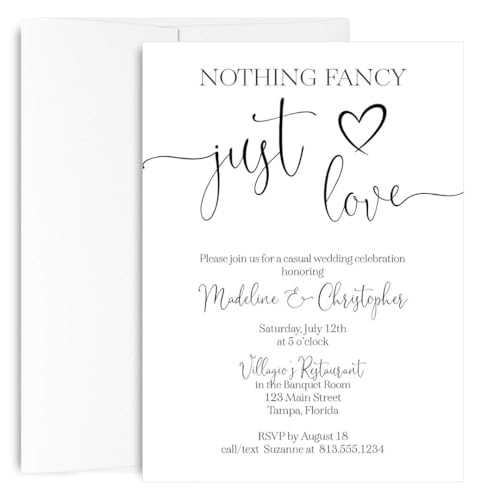 NOTHING FANCY
just
love
Please join us for a casual wedding celebration
honoring
Madeline & Christopher
Saturday, July 12th
at 5 o'clock
Villagio's Restaurant
in the Banquet Room
123 Main Street
Tampa, Florida
RSVP by August 18
call/text Suzanne at 813.555.1234